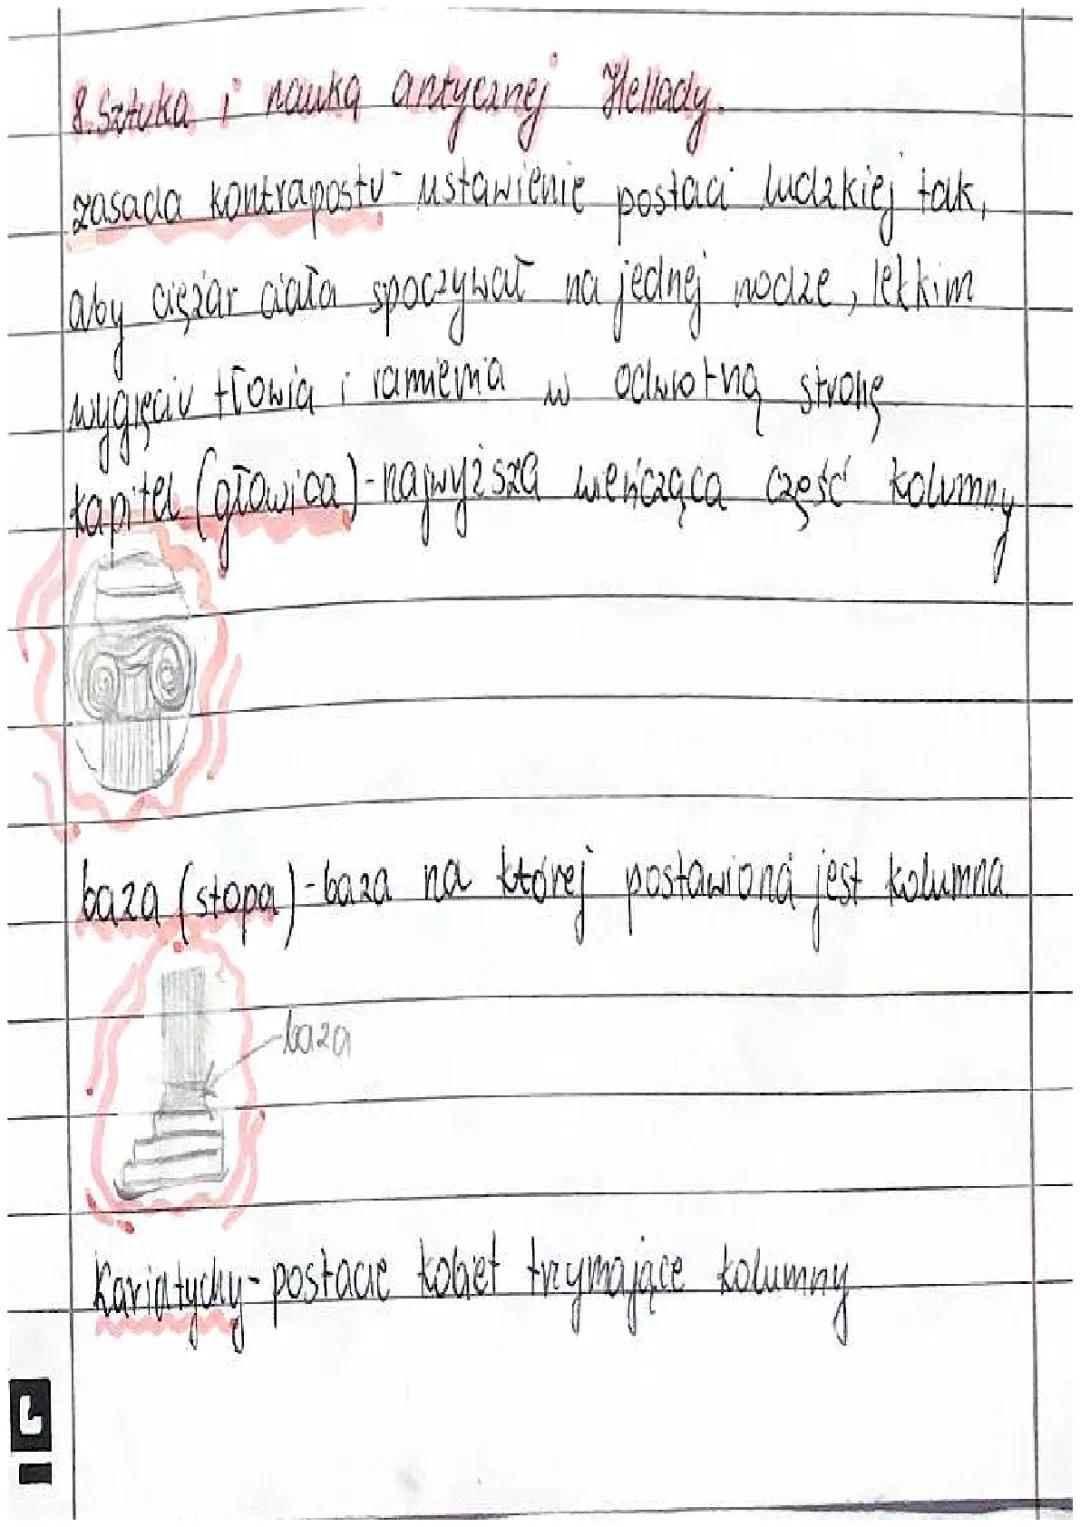 8. Sztuka i nauka antycznej Hellady.
zasada kontrapostu - ustawienie postaci ludzkiej tak,
aby ciężar ciała spoczywał na jednej nodze, lekkim
wygięciu tłowia i ramienia w odwrotną stronę
kapitel (głowica) - najwyższa wieńcząca część kolumny
baza (stopa) - baza na której postawiona jest kolumna
baza
Kariatydy - postacie kobiet trzymające kolumny